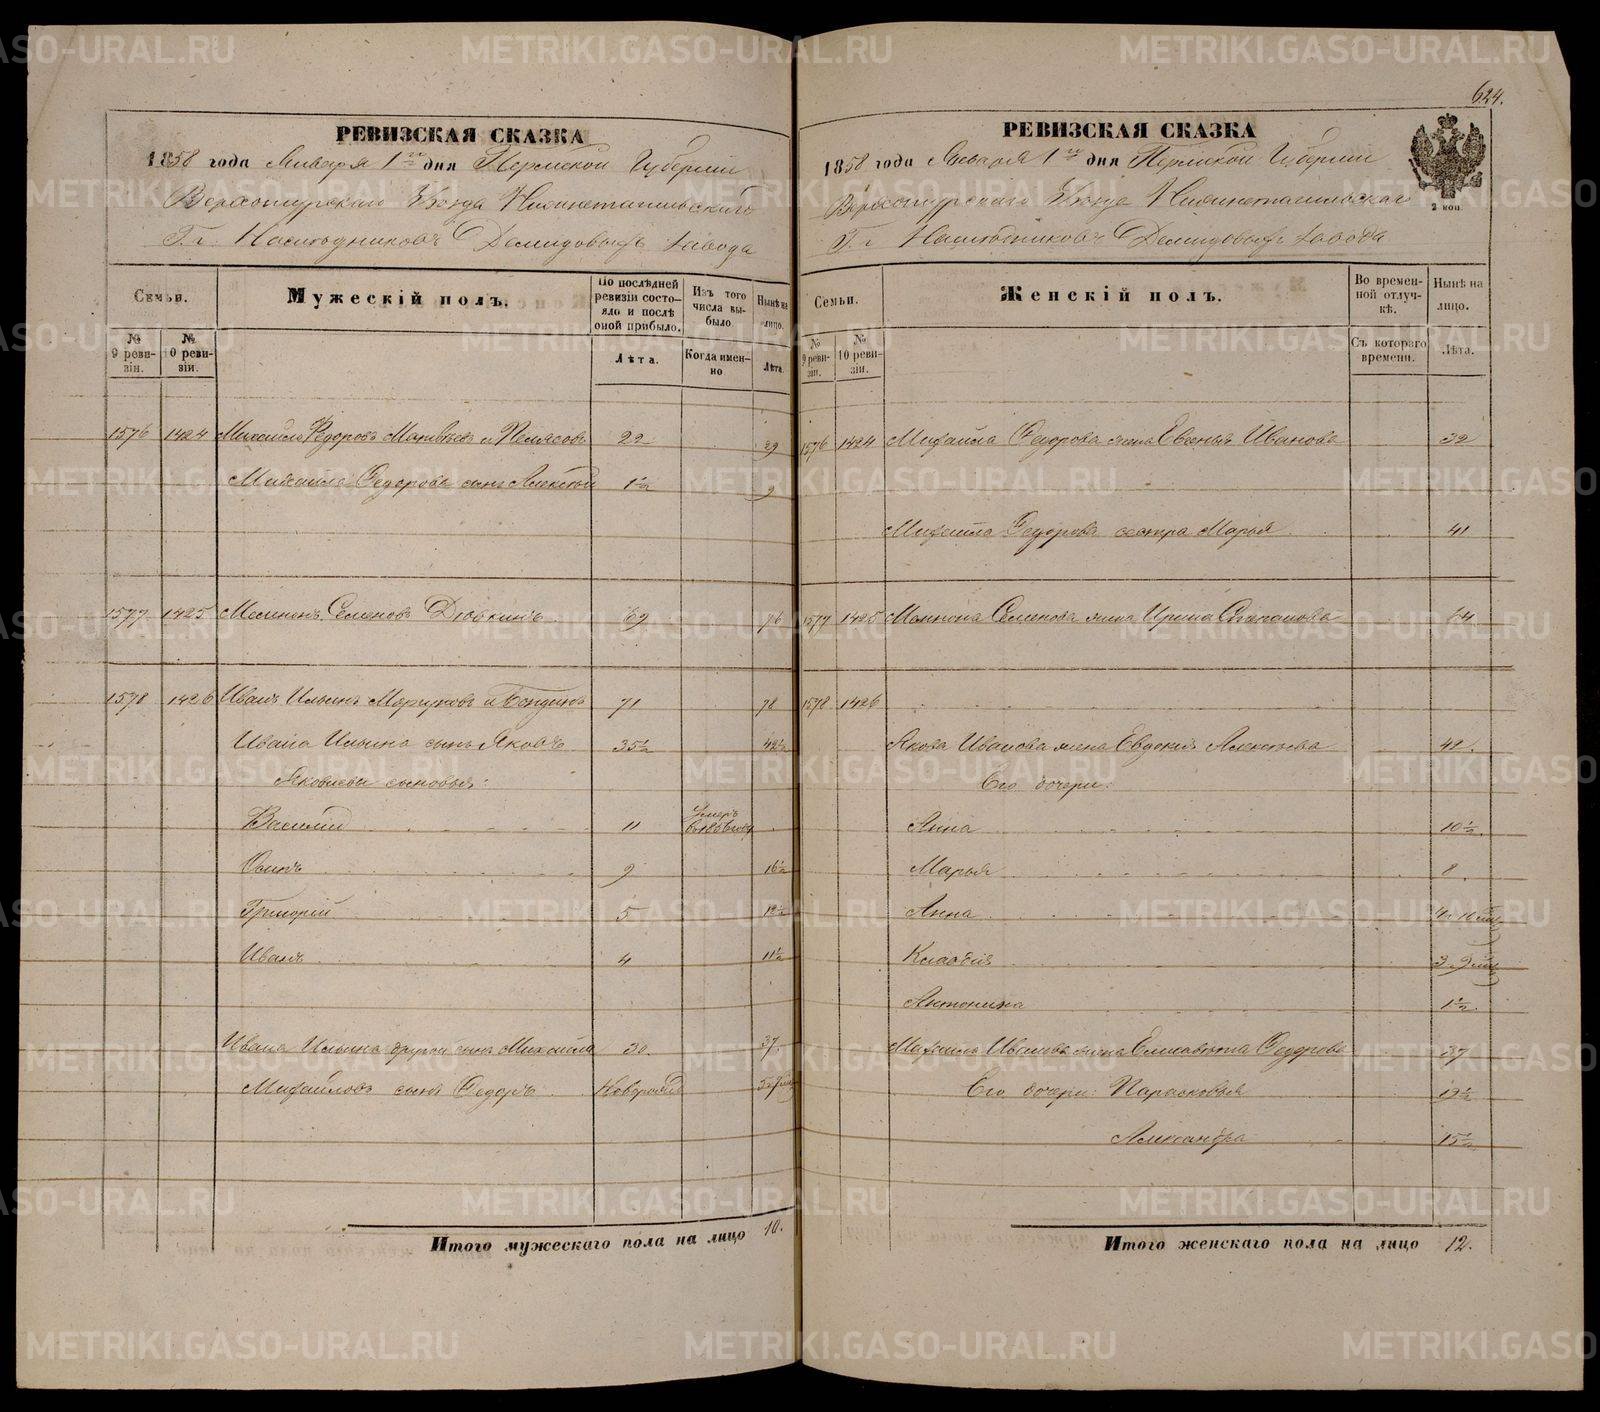 624.
РЕВИЗСКАЯ СКАЗКА
1858 года Января 1го дня Пермской Губернии
Верхотурскаго Уѣзда Нижнетагильскаго
Г. г. Наслѣдниковъ Демидовыхъ завода
Семьи.
Мужескій полъ.
По послѣдней ревизіи состояло и послѣ оной прибыло.
Изъ того числа выбыло
Нынѣ на лицо.
№ 9 ревизіи.
№ 10 ревизіи.
Лѣта.
Когда именно
Лѣта.
1576 1424 Михайло Федоровъ Матвѣевъ и 22 29
Михайла Федорова сынъ Алексѣй 1½ 9
1577 1425 Семеновъ 69 76
1578 1426 Иванъ Ильинъ и 71 78
Ивана Ильина сынъ Яковъ 35½ 42½
Яковлевы сыновья:
Василий 11 Умеръ
Осипъ 9 16½
Григорій 5 12½
Иванъ 4 11½
Ивана Ильина другой сынъ Михайла 30. 37.
Михайловъ сынъ Федоръ
Итого мужескаго пола на лицо 10.
РЕВИЗСКАЯ СКАЗКА
1858 года Января 1го дня Пермской Губернии
Верхотурскаго Уѣзда Нижнетагильскаго
Г. г. Наслѣдниковъ Демидовыхъ завода
2 коп.
Семьи.
Женскій полъ.
Во временной отлучкѣ.
Нынѣ на лицо.
№ 9 ревизіи.
№ 10 ревизіи.
Съ котораго времени.
Лѣта.
1576 1424 Михайла Федорова жена Иванова 32
Михайла Федорова сестра Марья 41
1577 1425 Семенова жена Ирина Степанова 64
1578 1426
Якова Иванова жена Евдокия Алексѣева 42.
Его дочери:
Анна 10½.
Марья 8.
Анна
Клавдія
Антонина 1½.
Михайла Иванова жена Елисавета Федорова 37
Его дочери: Парасковья
Александра 15½
Итого женскаго пола на лицо 12.
METRIKI.GASO-URAL.RU